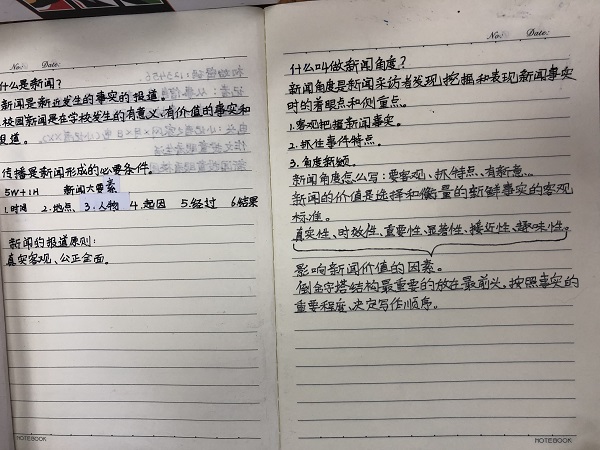 No:
Date:
什么是新闻?
新闻是新近发生的事实的报道。
校园新闻是在学校发生的有意义、有价值的事实和
报道。
传播是新闻形成的必要条件。
5W+1H 新闻六要素
1.时间 2.地点、3.人物 4.起因 5.经过 6.结果
新闻的报道原则:
真实客观、公正全面。
NOTEBOOK
No:
Date:
什么叫做新闻角度?
新闻角度是新闻采访者发现、挖掘和表现新闻事实
时的着眼点和侧重点。
1.客观把握新闻事实。
2.抓住事件特点。
3.角度新颖。
新闻角度怎么写:要客观、抓特点、有新意。
新闻的价值是选择和衡量的新鲜事实的客观
标准。
真实性、时效性、重要性、显著性、接近性、趣味性。
影响新闻价值的因素。
倒金字塔结构最重要的放在最前头,按照事实的
重要程度、决定写作顺序。
NOTEBOOK